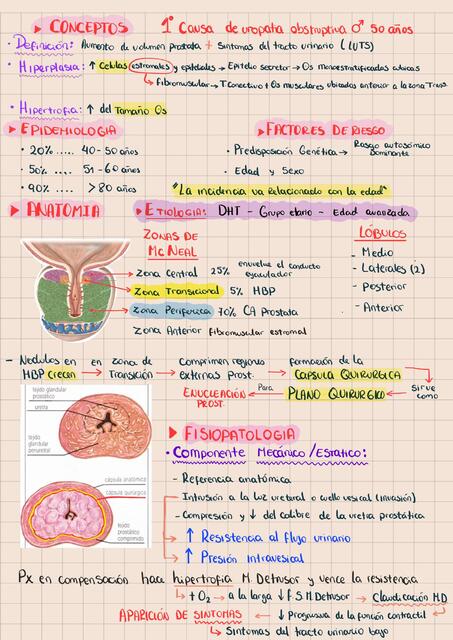 CONCEPTOS
1° Causa de uropatia obstructiva ♂ 50 años
• Definición: Aumento de volumen prostata + Sintomas del tracto urinario (LUTS)
• Hiperplasia: ↑ Celulas estromales y epiteliales → Epitelio secretor → Os monoestratificadas cúbicas
↳ Fibromuscular → T Conectivo + Os musculares ubicadas anterior a la zona Trans.
• Hipertrofia: ↑ del Tamaño Os
▶ EPIDEMIOLOGIA
• 20% .... 40-50 años
• 50% .... 51-60 años
• 90% .... > 80 años
▶ FACTORES DE RIESGO
• Predisposición Genética → Rasgo autosómico Dominante
• Edad y Sexo
"La incidencia va relacionado con la edad"
▶ ANATOMIA
▶ ETIOLOGIA: DHT - Grupo etario - Edad avanzada
ZONAS DE
MCNEAL
→ Zona Central 25% envuelve el conducto eyaculador
→ Zona Transicional 5% HBP
→ Zona Periferica 70% CA Prostata
Zona Anterior fibromuscular estromal
LÓBULOS
- Medio
- Laterales (2)
- Posterior
- Anterior
- Nodulos en HBP crecen → en zona de Transición → Comprimen regiones externas Prost. → formación de la CAPSULA QUIRURGICA
sirve como
PLANO QUIRURGICO
Para
ENUCLEACIÓN PROST.
tejido glandular
prostático
uretra
tejido
glandular
periuretral
cápsula anatómica
cápsula quirúrgica
tejido
prostático
comprimido
▶ FISIOPATOLOGIA
• Componente Mecánico/Estatico:
- Referencia anatómica
- Intrusión a la luz uretral o cuello vesical (invasión)
- Compresión y ↓ del calibre de la uretra prostática
↑ Resistencia al flujo urinario
↑ Presión Intravesical
Px en compensación hace hipertrofia M. Detrusor y vence la resistencia
↳ + O2 → a la larga ↓ f.S.M Detrusor → Claudicación M.D
APARICIÓN DE SINTOMAS ← ↓ Progresiva de la función contractil
↳ Sintomas del tracto urinario bajo